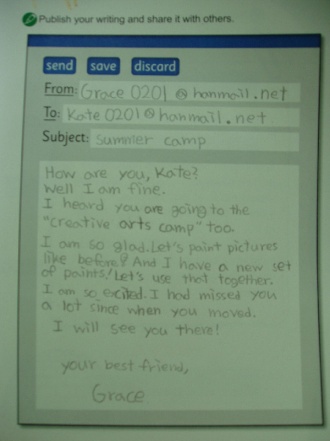 Publish your writing and share it with others.
send save discard
From: Grace 0201 @ hanmail.net
To: Kate 0201 @ hanmail.net
Subject: summer camp
How are you, Kate?
Well I am fine.
I heard you are going to the
"creative arts camp" too.
I am so glad. Let's paint pictures
like before! And I have a new set
of paints! Let's use that together.
I am so excited. I had missed you
a lot since when you moved.
I will see you there!
your best friend,
Grace